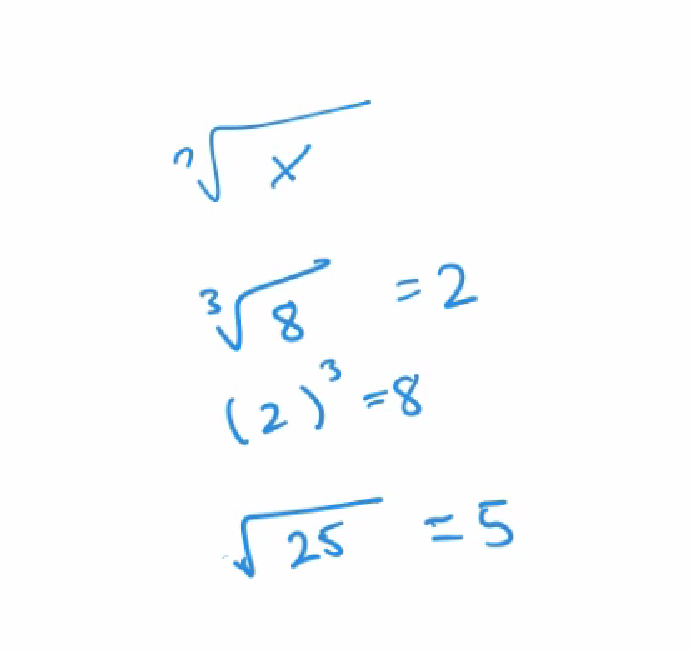 ⁿ√x
³√8 = 2
(2)³ = 8
√25 = 5